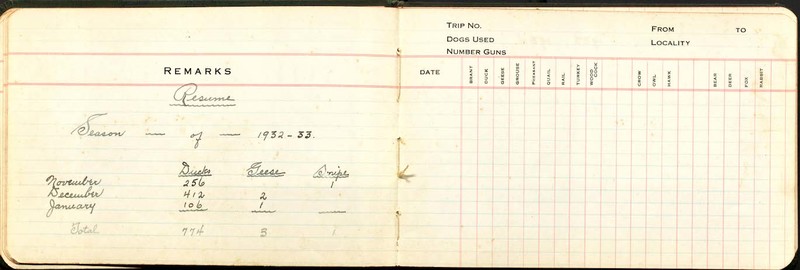 REMARKS
Resume
Season — of — 1932-33.
Ducks Geese Snipe
November 256 1
December 412 2
January 106 1 —
Total 774 3 1
TRIP NO. FROM TO
DOGS USED LOCALITY
NUMBER GUNS
DATE BRANT DUCK GEESE GROUSE PHEASANT QUAIL RAIL TURKEY WOOD COCK CROW OWL HAWK BEAR DEER FOX RABBIT